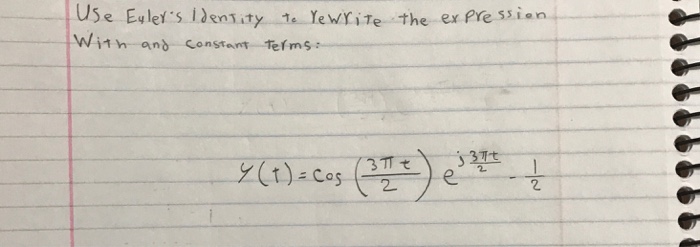 Use Euler's Identity to rewrite the expression
With and constant terms:
y(t) = cos (3πt/2) e^(j 3πt/2) - 1/2